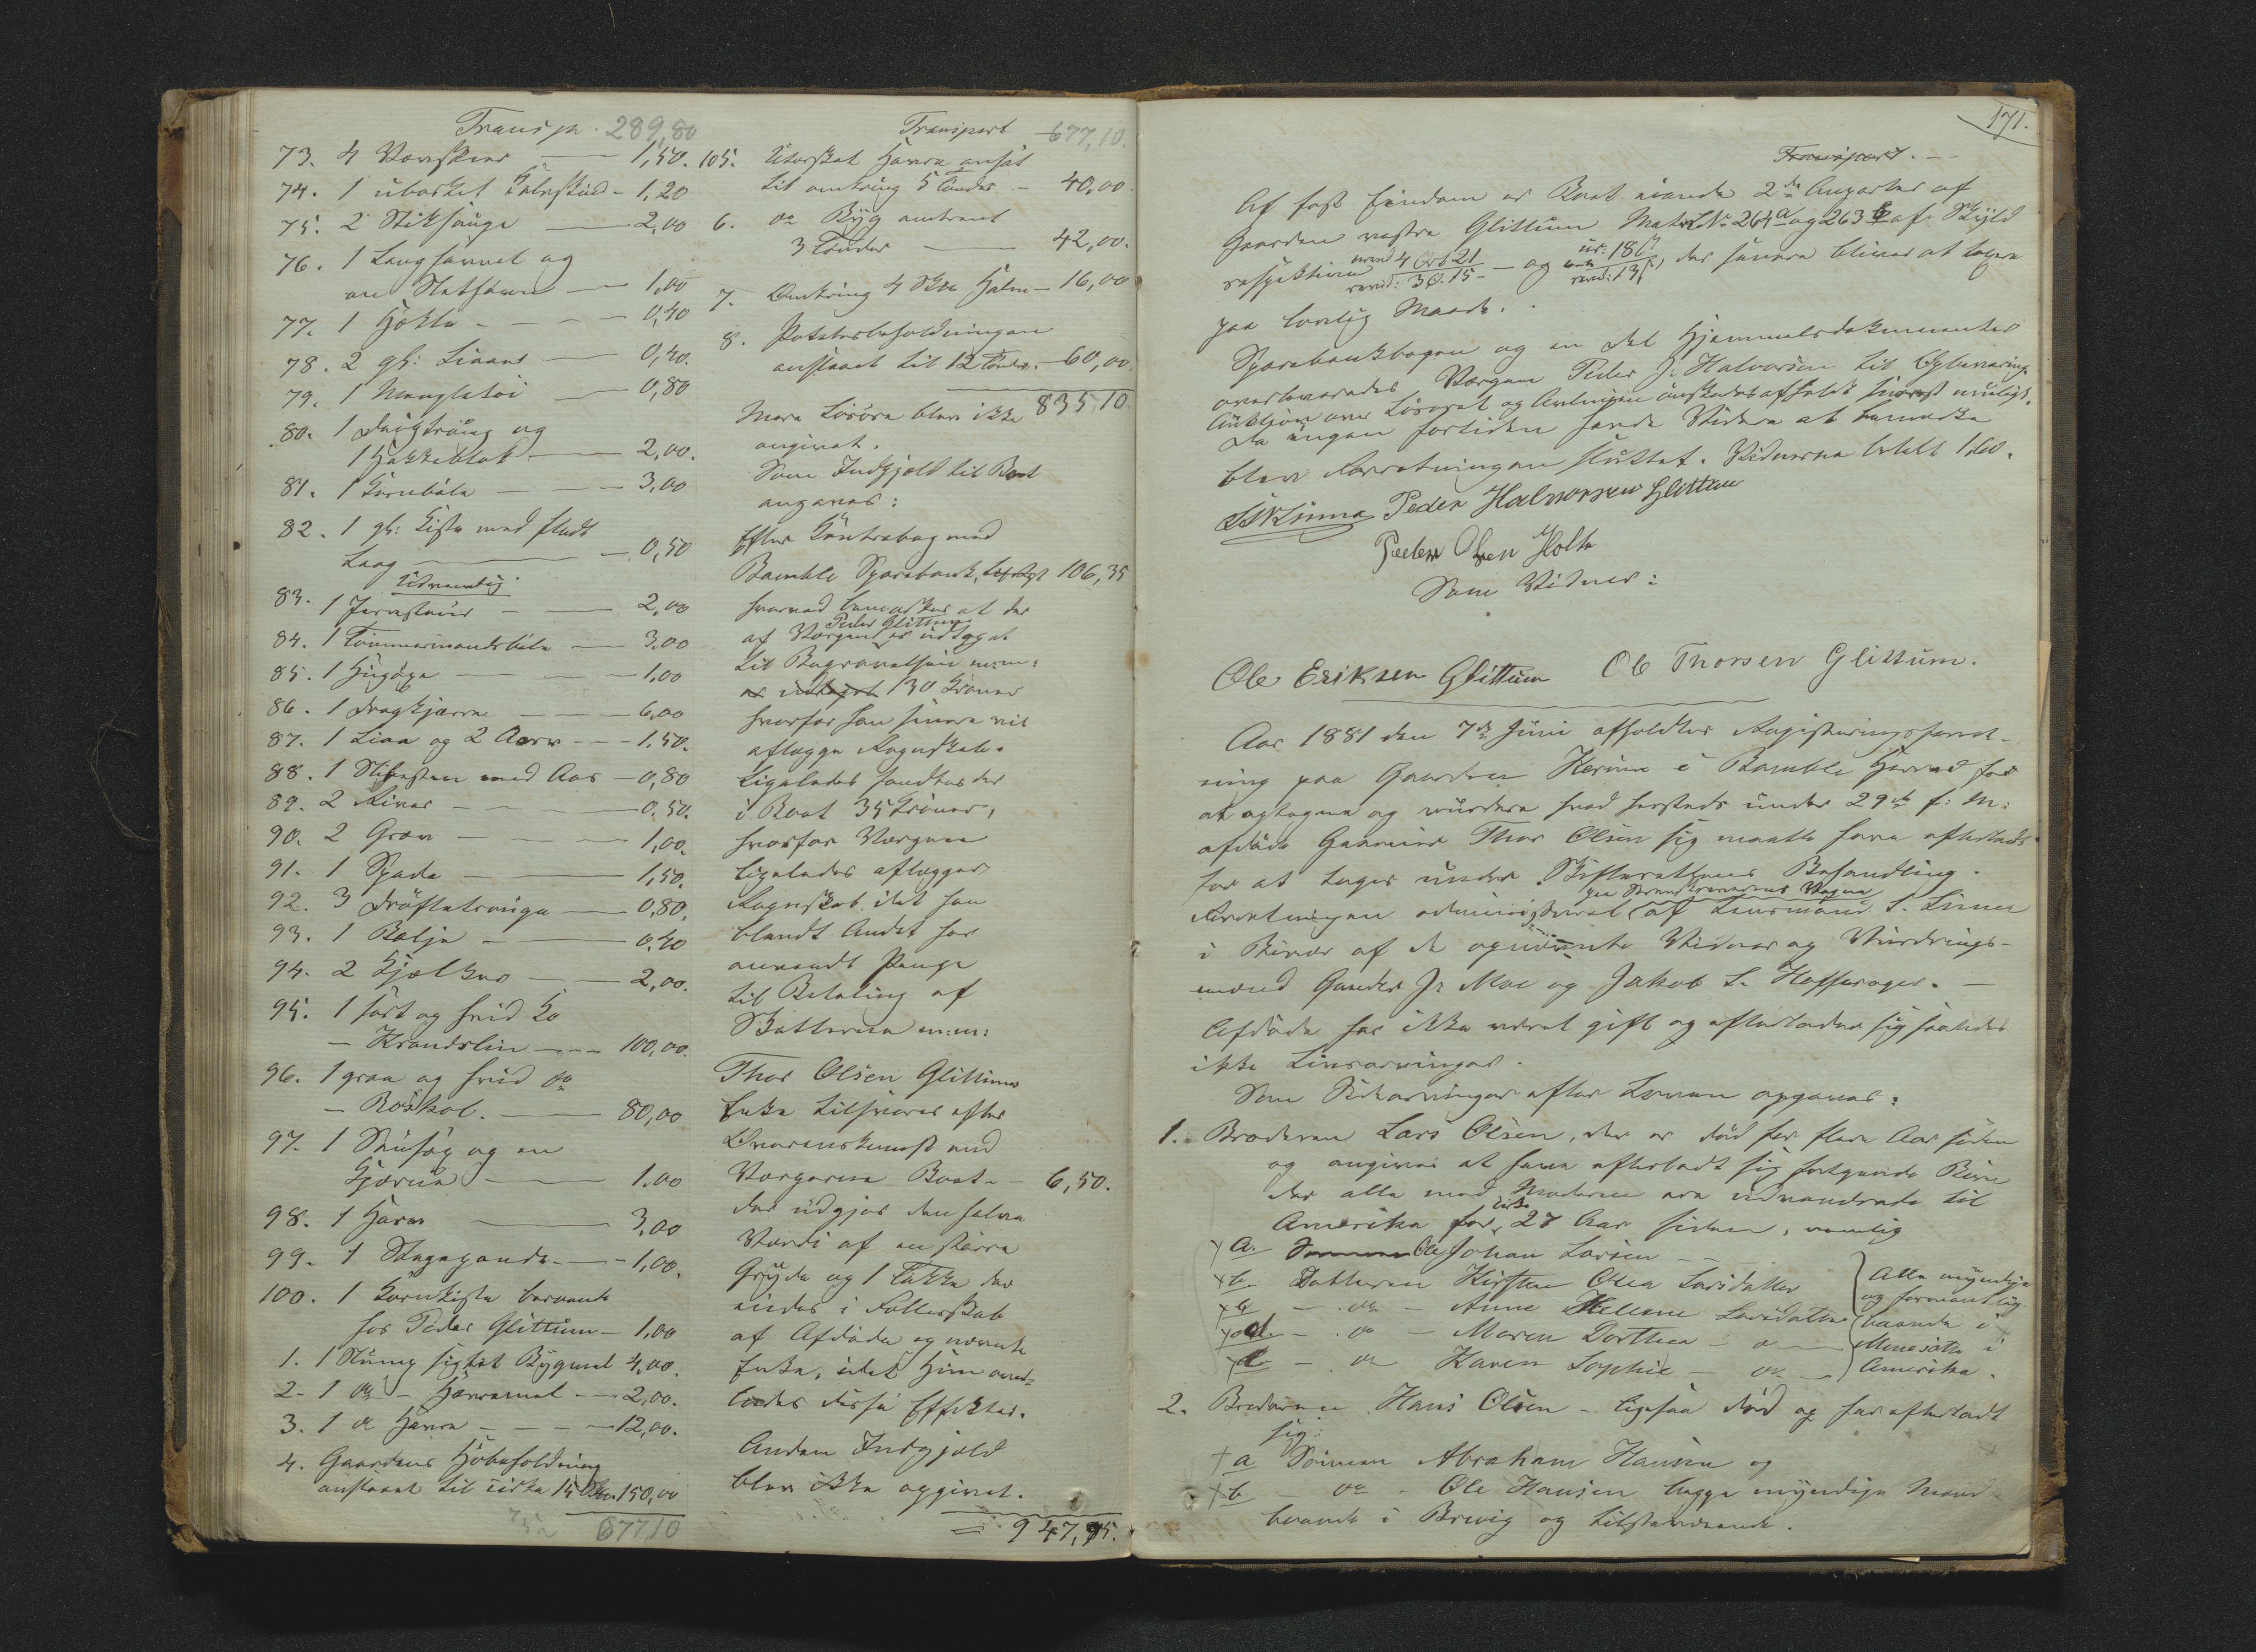 Transp. 289,80
73. 4 Vævskeer — 1,50.
74. 1 ubarket Kalveskind - 1,20
75. 2 Stiksauge — 2,00
76. 1 Langhøvel og
en Slethøvel — 1,00
77. 1 Hækle - - - - 0,40
78. 2 gl: Liaaer — 0,40.
79. 1 Mangletøi — 0,80
80. 1 Deigtroug og
1 Hakkeblok — 2,00.
81. 1 Kornbøle — 3,00
82. 1 gl: Kiste med fladt
Laag — 0,50
Udvendig
83. 1 Jernstaur - — 2,00
84. 1 Tømmermandsbøle — 3,00
85. 1 Hugøxe — 1,00
86. 1 Dragkjærre - — 6,00
87. 1 Liaa og 2 Aarer — 1,50.
88. 1 Slibesten med Aas — 0,80
89. 2 River - — 0,50.
90. 2 Grev — 1,00.
91. 1 Spade — 1,50.
92. 3 Drøftetrouge — 0,80.
93. 1 Balje - — 0,40
94. 2 Kjælker — 2,00.
95. 1 sort og hvid Ko
— Krandslin — 100,00.
96. 1 graa og hvid do
— Roskol. — 80,00
97. 1 Snesøg og en
— 1,00
98. 1 Harv — 3,00
99. 1 Stegepande — 1,00.
100. 1 Kornkiste beroende
hos Peder Glittum — 1,00
1. 1 Slump sigtet Bygmel 4,00.
2. 1 do - Havremel — 2,00.
3. 1 do Havre - - - 12,00.
4. Gaardens Høbeholdning
anslaaet til cirka 15 150,00
677,10
Transport 677,10.
105. Utærsket Havre ansat
til omtring 5 Tønder - 40,00.
6. do Byg omtrent
3 Tønder — 42,00.
7. Omkring 4 Halm — 16,00
8. Potetesbeholdningen
anslaaet til 12 Tønder. — 60,00.
835,10
Mere Løsøre blev ikke
angivet.
Som Indgjæld til Boet
angaves:
Efter Kontrabog med
Bamble Sparebank, 106,35
hvorved bemærkes at der
Peder Glittum
af Værgen er udtaget
til Begravelsen m:m:
er udtaget 130 Kroner
hvorfor han senere vil
aflægge Regnskab.
Ligeledes fandtes der
i Boet 35 Kroner,
hvorfor Værgen
ligeledes aflægger
Regnskab, idet han
blandt Andet har
anvendt Penge
til Betaling af
Skatterne m:m:
Thor Olsen Glittums
Enke tilsvarer efter
Overenskomst med
Værgerne Boet - 6,50.
der udgjør den halve
Værdi af en større
Gryde og 1 Takke der
eiedes i Fællesskab
af Afdøde og nævnte
Enke, idet Hun
disse Effekter.
Anden Indgjæld
blev ikke opgivet.
= 947,95.
171.
Transport. -
Af fast Eiendom er Boet eiende 2de Anparter af
Gaarden vestre Glittum Matr.L.No 264a og 263b af Skyld
respektive 4 Ort 21 — og , der senere bliver at taxere
paa lovlig Maade.
Sparebankbogen og en Del Hjemmelsdokumenter
overleveredes Værgen Peder J. Halvorsen til Opbevaring.
Auktion over Løsøret og Avlingen ønskedes afholdt snarest muligt.
Da ingen fortiden havde Videre at bemærke
blev Forretningen sluttet. Vidnerne betalt 1,60.
S. Linna Peder Halvorsen Glittum
Peder Olsen Holte
Som Vidner:
Ole Eriksen Glittum Ole Thorsen Glittum.
Aar 1881 den 7de Juni afholdtes Registreringsforret-
ning paa Gaarden Herum i Bamble Herred for
at optegne og vurdere hvad hersteds under 29de f: M:
afdøde Gaarmand Thor Olsen sig maatte have efterladt
for at tages under Skifterettens Behandling.
paa Sorenskriverens Vegne
Forretningen administreret af Lensmand S. Linna
i Overvær af de opnævnte Vidner og Vurderings-
mænd Gunder Jr Moe og Jakob L. .
Afdøde har ikke været gift og efterlader sig saaledes
ikke Livsarvinger.
Som Sidearvinger efter Loven opgaves:
1. Broderen Lars Olsen, der er død for flere Aar siden
og angives at have efterladt sig følgende Børn
der alle med Moderen ere udvandrede til
cirka
Amerika for 27 Aar siden, nemlig
a. Ole Johan Larsen —
b. Datteren Kirsten Olea Larsdatter
c — do — Anne Hellene Larsdatter
d. — do — Maren Dorthea — do —
e — do Karen Sophie — do —
Alle myndige
og formentlig
boende i
Minesotta i
Amerika.
2. Broderen Hans Olsen - ligesaa død og har efterladt
sig:
a Sønnen Abraham Hansen og
b do - Ole Hansen begge myndige Mænd
boende i Brevig og tilstedeværende.